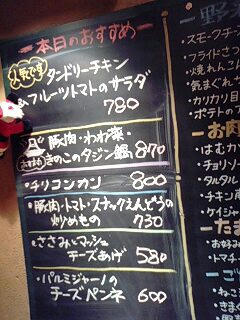 本日のおすすめ
人気です
タンドリーチキン
&フルーツトマトのサラダ
780
おすすめ
豚肉・わわ菜・
きのこのタジン鍋 870
・チリコンカン 800
・豚肉・トマト・スナックえんどうの
炒めもの 730
・ささみとマッシュの
チーズあげ 580
・パルミジャーノの
チーズペンネ 600
野
・スモークチー
・フライドさつ
・焼きれんこん
・気まぐれ
・カリカリ
・ポテトのフ
お肉
・はむカツ
・チョリソー
・タルタル
・チキン
・ケイジャ
たま
・お好み
・トマチー
ご
・ねこ